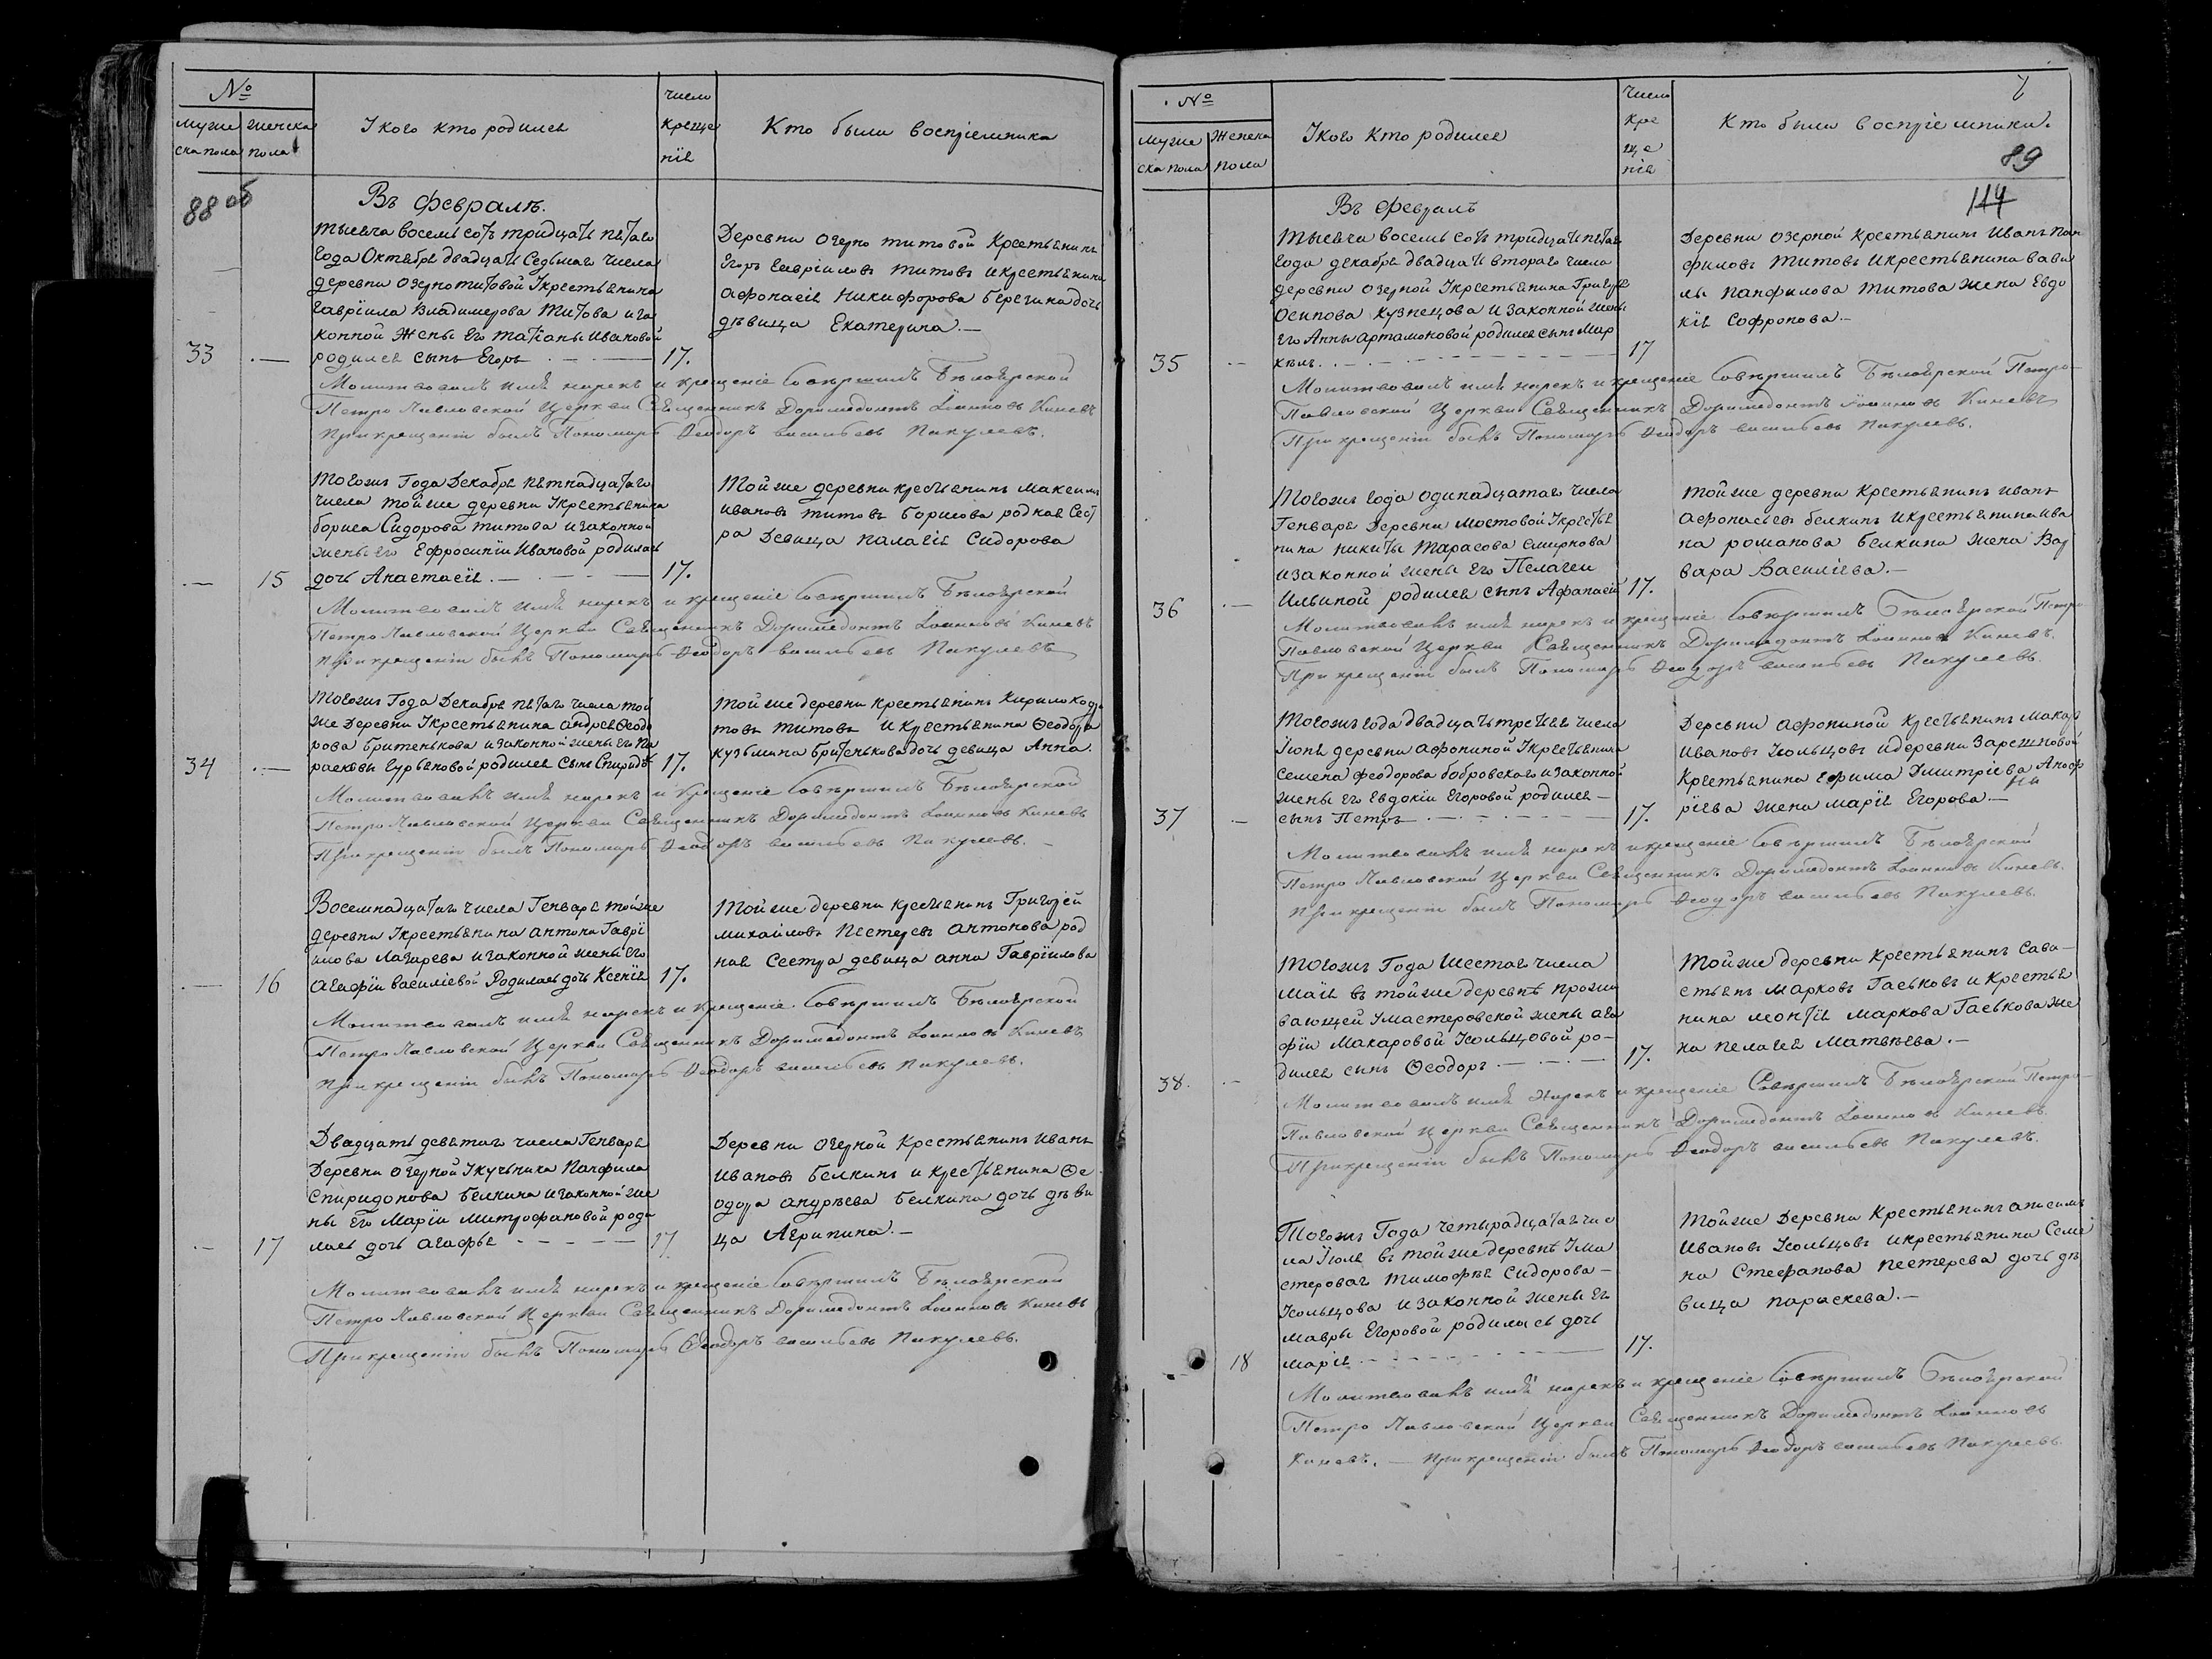 №
мужеска пола
женска пола
У кого кто родился
число крещенія
Кто были воспріемники
88 об
Въ Февралѣ.
тысяча восемь сотъ тридцать пятаго
года Октября двадцать Седьмаго числа
деревни озерно титовой Укрестьянина
Гавріила Владимерова Титова иза
конной жены Его Татіаны Ивановой
33 — родился сынъ Егоръ 17.
Деревни Озерно титовой Крестьянинъ
Егоръ Гавріиловъ титовъ икрестьянина
афонасія Никифорова Берегина дочь
дѣвица Екатерина.—
Молитвовалъ имя нарекъ и крещеніе Совершилъ Бѣлоярской
Петро Павловской Церкви Священникъ Доримедонтъ Іоанновъ Киневъ
При крещеніи былъ Пономарь Ѳеодоръ васильевъ Пикулевъ.
Тогожъ Года Декабря пятнадцатаго
числа тойже деревни Укрестьянина
бориса Сидорова титова изаконной
жены Его Ефросиніи Ивановой родилась
— 15 дочь Анастасія.— 17.
Тойже деревни крестьянинъ Максимъ
ивановъ титовъ борисова родная Сест
ра Девица палагія Сидорова
Молитвовалъ имя нарекъ и крещеніе Совершилъ Бѣлоярской
Петро Павловской Церкви Священникъ Доримедонтъ Іоанновъ Киневъ
При крещеніи былъ Пономарь Ѳеодоръ васильевъ Пикулевъ
Тогожъ Года Декабря пятаго числа той
же Деревни Укрестьянина андрея Ѳеодо
рова бритенькова изаконной жены Его па
34 — расковьи Гурьяновой родился Сынъ Спиридо 17.
тойже деревни крестьянинъ Кирило Кодра
товъ титовъ икрестьянина Ѳеодора
кузьмина бритенькова дочь девица Анна.
Молитвовалъ имя нарекъ и крещеніе Совершилъ Бѣлоярской
Петро Павловской Церкви Священникъ Доримедонтъ Іоанновъ Киневъ
При крещеніи былъ Пономарь Ѳеодоръ васильевъ Пикулевъ. —
Восемнадцатаго числа Генваря тойже
деревни Укрестьянина антона Гаврі
илова Лазарева изаконной жены Его
— 16 агафіи василіевой Родилась дочь Ксенія 17.
Тойже деревни крестьянинъ Григорій
михайловъ пестеревъ антонова род
ная Сестра девица анна Гавріилова
Молитвовалъ имя нарекъ и крещеніе Совершилъ Бѣлоярской
Петро Павловской Церкви Священникъ Доримедонтъ Іоанновъ Киневъ
При крещеніи былъ Пономарь Ѳеодоръ васильевъ Пикулевъ.
Двадцать девятаго числа Генваря
Деревни Озерной Укучьника Панфила
Спиридонова белкина изаконной же
ны Его Маріи Митрофановой роди
— 17 лась дочь агафья 17.
Деревни Озерной Крестьянинъ Иванъ
Ивановъ Белкинъ и крестьянина Ѳе
одора андрѣева белкина дочь дѣви
ца Агрипина.—
Молитвовалъ имя нарекъ и крещеніе Совершилъ Бѣлоярской
Петро Павловской Церкви Священникъ Доримедонтъ Іоанновъ Киневъ
При крещеніи былъ Пономарь Ѳеодоръ васильевъ Пикулевъ.
№
мужеска пола
женска пола
Укого кто родился
Число крещенія
Кто были воспріемники.
7
89
114
Въ Февралѣ
тысяча восемь сотъ тридцать пятаго
Года декабря двадцать втораго числа
деревни Озерной Укрестьянина Григорья
Осипова Кузнецова и законной жены
Его Анны артамоновой родился сынъ Мар
35 — кълъ. 17
Деревни озерной Крестьянинъ Иванъ Пан
филовъ титовъ икрестьянина вави
лы панфилова титова жена Евдо
кія Софронова.—
Молитвовалъ имя нарекъ и крещеніе Совершилъ Бѣлоярской Петро-
Павловской Церкви Священникъ Доримедонтъ Іоанновъ Киневъ
При крещеніи былъ Пономарь Ѳеодоръ васильевъ Пикулевъ.
тогожъ года одинадцатаго числа
Генваря Деревни мостовой Укрестья
нина никиты Тарасова смирнова
изаконной жены Его Пелагеи
36 — Ильиной родился сынъ Афанасій 17.
тойже деревни Крестьянинъ иванъ
афонасьевъ белкинъ икрестьянина ива
на романова белкина жена Вар
вара Василіева.—
Молитвовалъ имя нарекъ и крещеніе Совершилъ Бѣлоярской Петро
Павловской Церкви Священникъ Доримедонтъ Іоанновъ Киневъ.
При крещеніи былъ Пономарь Ѳеодоръ васильевъ Пикулевъ.
тогожъ года двадцать третьея числа
Іюня деревни афониной Укрестьянина
семена Феодорова бобровскаго изаконной
жены его Евдокіи Егоровой родился—
37 — сынъ Петръ 17.
Деревни афониной крестьянинъ макаръ
ивановъ Усольцовъ идеревни Зарешновой
Крестьянина Ефима Дмитріева
ріева жена марія Егорова.—
Молитвовалъ имя нарекъ и крещеніе Совершилъ Бѣлоярской
Петро Павловской Церкви Священникъ Доримедонтъ Іоанновъ Киневъ.
При крещеніи былъ Пономарь Ѳеодоръ васильевъ Пикулевъ.
тогожъ Года шестаго числа
Маія въ тойже деревнѣ прожи
вающей Умастеровской жены ага
фіи Макаровой Усольцовой ро—
38. — дился сынъ Ѳеодоръ 17.
тойже деревни Крестьянинъ Сава—
стьянъ марковъ Гаськовъ и Крестья
нина леонтія Маркова Гаськова же
на пелагея Матвѣева.—
Молитвовалъ имя нарекъ и крещеніе Совершилъ Бѣлоярской Петро—
Павловской Церкви Священникъ Доримедонтъ Іоанновъ Киневъ.
При крещеніи былъ Пономарь Ѳеодоръ васильевъ Пикулевъ.
Тогожъ Года четырадцатаго чис
ла Іюля въ тойже деревнѣ Ума
стероваго Тимофѣя Сидорова—
Усольцова изаконной жены Его
мавры Егоровой родилась дочь
— 18 марія 17.
тойже Деревни Крестьянинъ анисимъ
Ивановъ Усольцовъ икрестьянина Семе
на Стефанова пестерева дочь дѣ
вица параскева.—
Молитвовалъ имя нарекъ и крещеніе Совершилъ Бѣлоярской
Петро Павловской Церкви Священникъ Доримедонтъ Іоанновъ
Киневъ. — При крещеніи былъ Пономарь Ѳеодоръ васильевъ Пикулевъ.